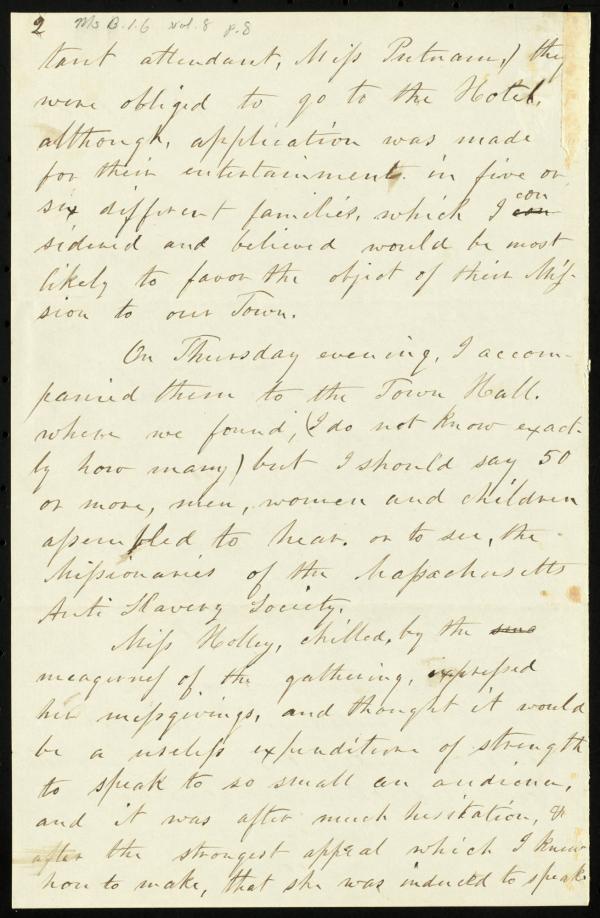 2 Ms B.1.6 vol. 8 p. 8
tant attendant, Miss Putnam,) they
were obliged to go to the Hotel,
although, application was made
for their entertainment in five or
six different families, which I con
sidered and believed would be most
likely to favor the object of their Mis-
sion to our Town.
On Thursday evening, I accom-
panied them to the Town Hall.
where we found, (I do not know exact-
ly how many) but I should say 50
or more, men, women and children
assembled to hear. or to see, the
Missionaries of the Massachusetts
Anti Slavery Society.
Miss Holley, chilled, by the
meagerness of the gathering, expressed
her missgivings, and thought it would
be a useless expenditure of strength
to speak to so small an audience,
and it was after much hesitation, &
after the strongest appeal which I knew
how to make, that she was induced to speak